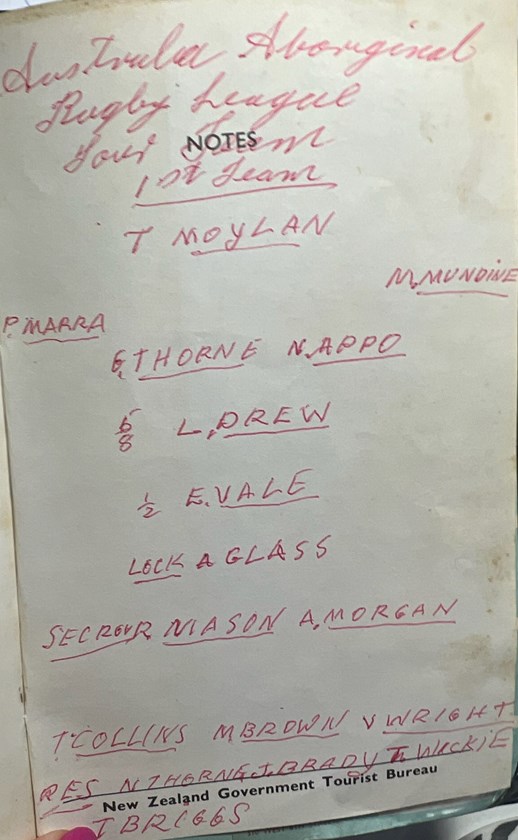 Australia Aboriginal
Rugby League
Tour Team
NOTES
1st Team
T MOYLAN
M. MUNDINE
P. MARRA
G. THORNE N. APPO
5/8 L. DREW
1/2 E. VALE
LOCK A GLASS
SEC ROW R MASON A. MORGAN
T COLLINS M BROWN V WRIGHT
RES N THORNE J. BRADY T.
New Zealand Government Tourist Bureau
T BRIGGS